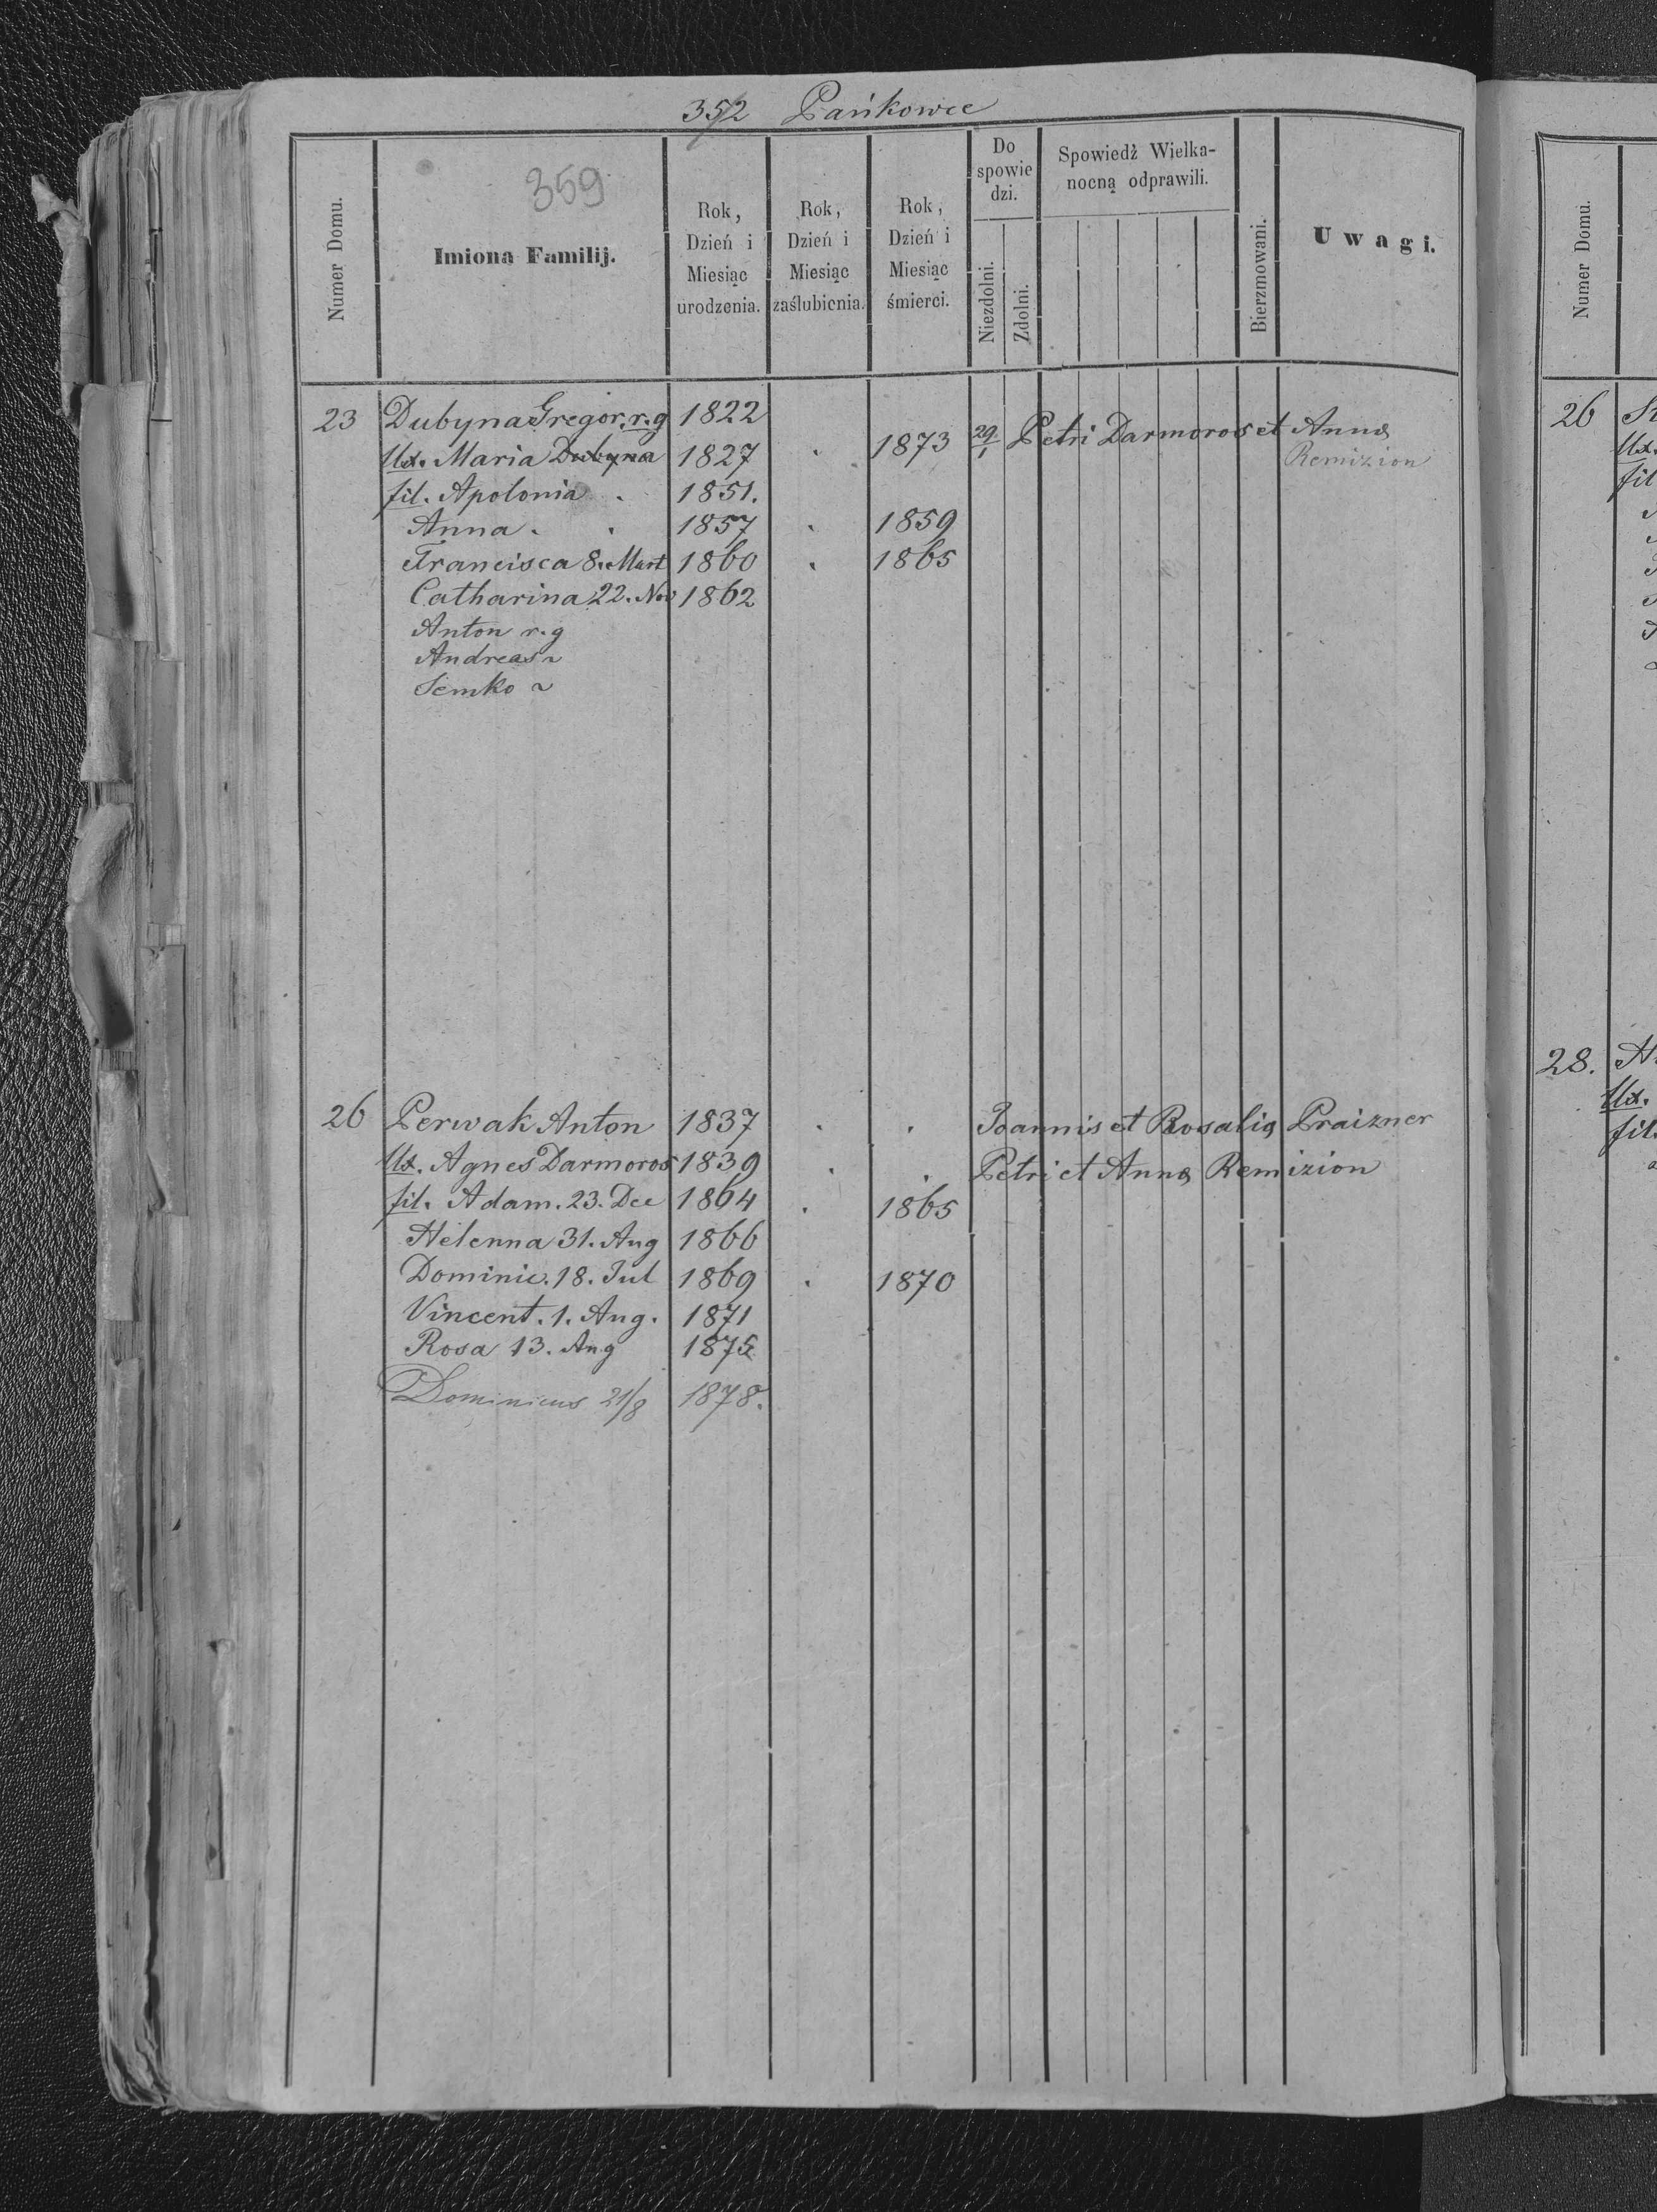 352 Pańkowce
359
Numer Domu.
Imiona Familij.
Rok, Dzień i Miesiąc urodzenia.
Rok, Dzień i Miesiąc zaślubienia.
Rok, Dzień i Miesiąc śmierci.
Do spowiedzi.
Niezdolni.
Zdolni.
Spowiedź Wielkanocną odprawili.
Bierzmowani.
Uwagi.
23 Dubyna Gregor. r. g 1822
Ux. Maria Dubyna 1827 1873 29/1 Petri Darmoros et Anna
Remizion
fil. Apolonia 1851.
Anna 1857 1859
Francisca 8. Mart 1860 1865
Catharina 22. Nov 1862
Anton r. g
Andreas ~
Semko ~
26 Perwak Anton 1837 Joannis et Rosalia Praizner
Ux. Agnes Darmoros 1839 Petri et Anna Remizion
fil. Adam. 23. Dec 1864 1865
Helenna 31. Aug 1866
Dominic. 18. Jul 1869 1870
Vincent. 1. Aug. 1871
Rosa 13. Aug 1875
Dominicus 21/8 1878.
Numer Domu.
26
Ux.
fil
28.
Ux.
fil.